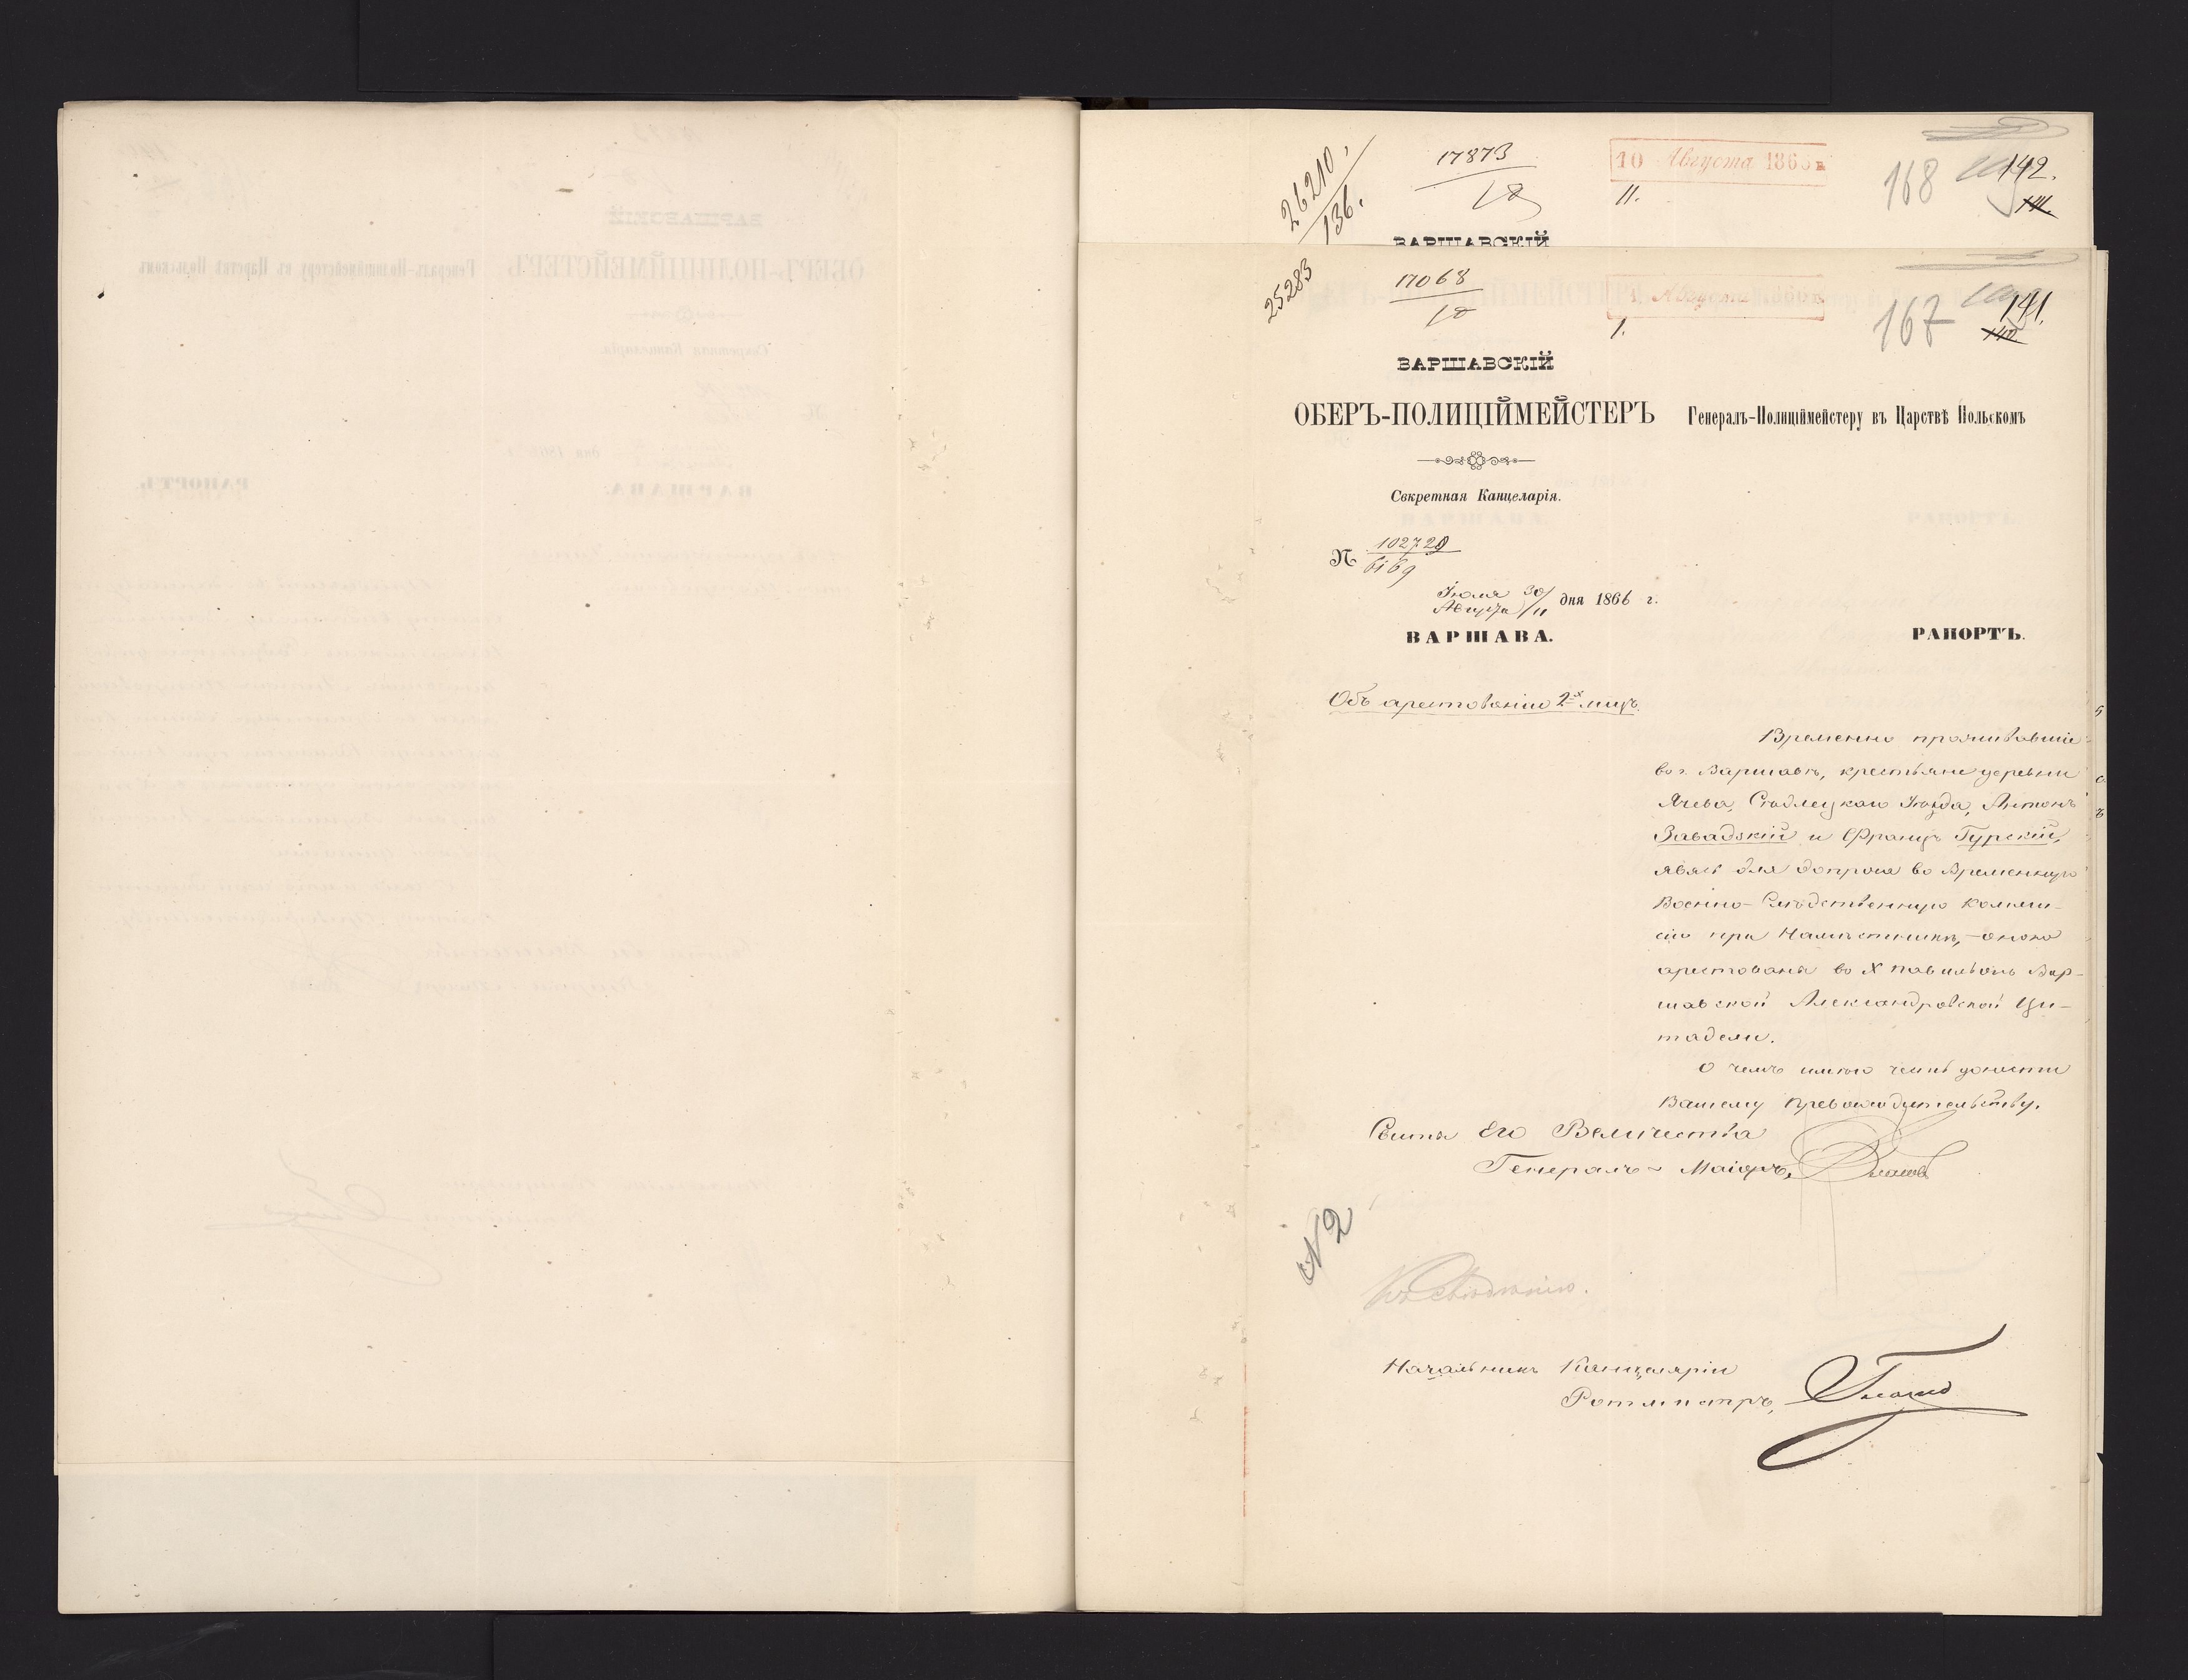 26210.
136.
17873
18
10 Августа 1866 г.
11.
168
142.
141.
ВАРШАВСКІЙ
25283
17068
18
1 Августа 1866 г.
1.
167
141.
140.
ВАРШАВСКІЙ
ОБЕРЪ-ПОЛИЦІЙМЕЙСТЕРЪ
Генералъ-Полиціймейстеру въ Царствѣ Польскомъ
Секретная Канцеларія.
№ 102728
6169
Іюля 30/
Августа /11 дня 1866 г.
ВАРШАВА.
РАПОРТЪ.
Объ арестованіи 2х лицъ.
Временно проживавшіе
въ г. Варшавѣ, крестьяне деревни
Сѣдлецкаго Уѣзда, Антонъ
Завадзкій и Францъ Гурскій,
явясь для допроса во Временную
Военно-Слѣдственную Коммис-
сію при Намѣстникѣ,
арестованы въ X павильонъ Вар-
шавской Александровской Ци-
тадели.
О чемъ имѣю честь донести
Вашему Превосходительству.
Свиты Его Величества
Генералъ-Маіоръ,
№ 2
Къ свѣдѣнію.
Начальникъ Канцеляріи
Ротмистръ,